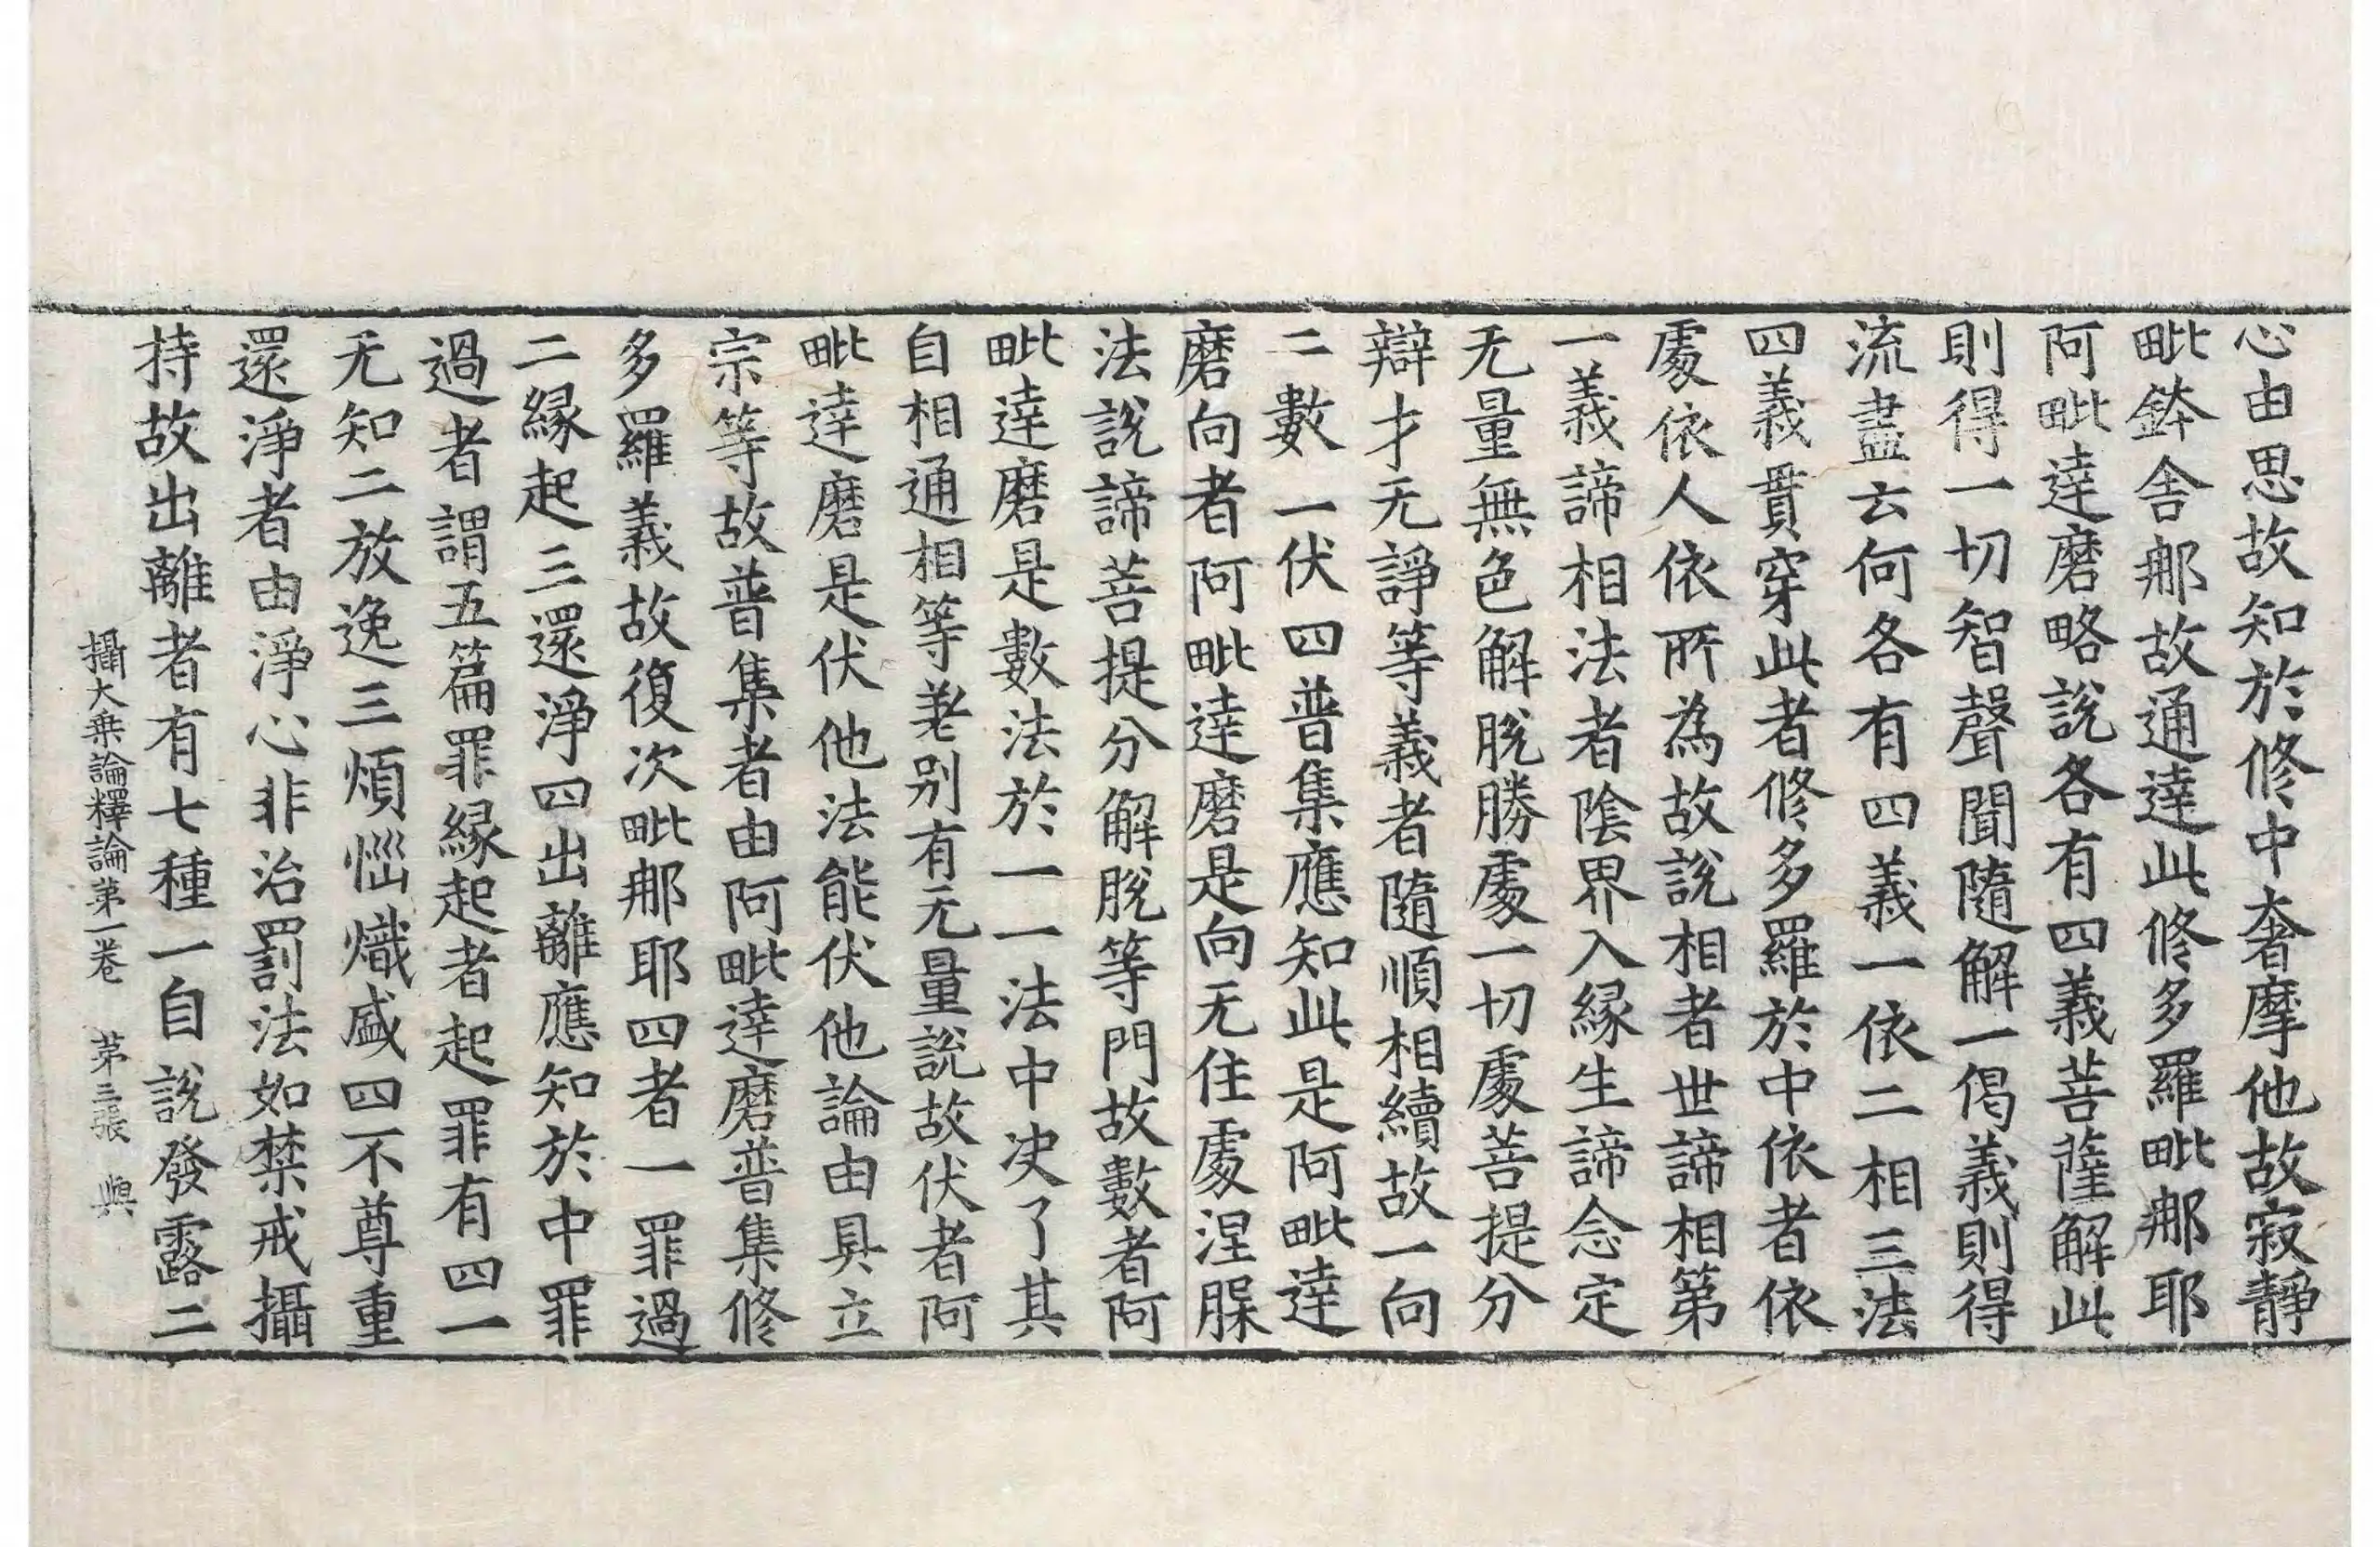 心由思故知於修中奢摩他故寂靜
毗鉢舍那故通達此修多羅毗那耶
阿毗達磨略說各有四義菩薩解此
則得一切智聲聞隨解一偈義則得
流盡云何各有四義一依二相三法
四義貫穿此者修多羅於中依者依
處依人依所為故說相者世諦相第
一義諦相法者陰界入緣生諦念定
无量無色解脫勝處一切處菩提分
辯才无諍等義者隨順相續故一向
二數一伏四普集應知此是阿毗達
磨向者阿毗達磨是向无住處涅槃
法說諦菩提分解脫等門故數者阿
毗達磨是數法於一一法中決了其
自相通相等差別有无量說故伏者阿
毗達磨是伏他法能伏他論由具立
宗等故普集者由阿毗達磨普集修
多羅義故復次毗那耶四者一罪過
二緣起三還淨四出離應知於中罪
過者謂五篇罪緣起者起罪有四一
无知二放逸三煩惱熾盛四不尊重
還淨者由淨心非治罰法如禁戒攝
持故出離者有七種一自說發露二
攝大乗論釋論第一卷 第三張 輿